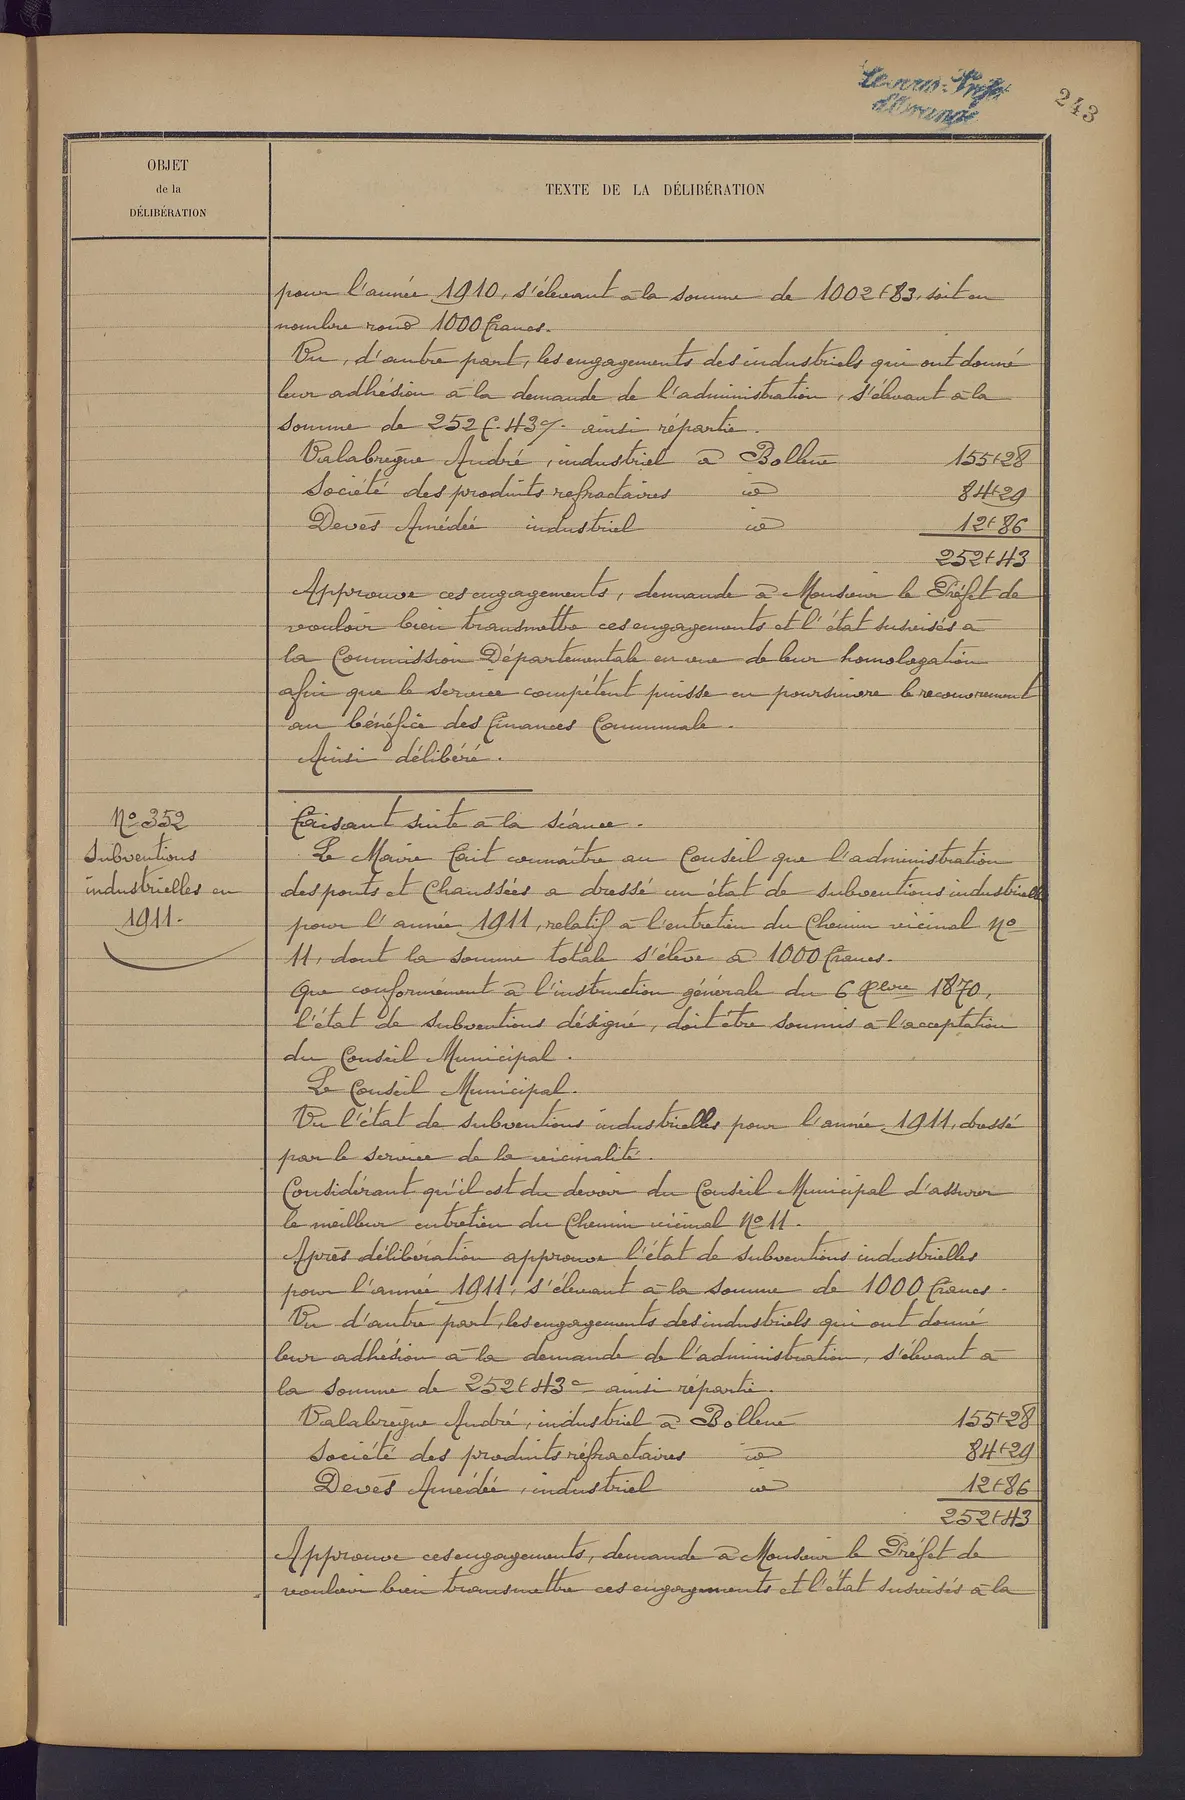 Le sous-Préfet
d'Orange
243
OBJET
de la
DÉLIBÉRATION
TEXTE DE LA DÉLIBÉRATION
pour l'année 1910, s'élevant à la somme de 1002f83, soit en
nombre rond 1000 francs.
Vu, d'autre part, les engagements des industriels qui ont donné
leur adhésion à la demande de l'administration, s'élevant à la
somme de 252 f. 43c. ainsi répartie.
Valabrègue André, industriel à Bollène 155f28
Société des produits refractaires id 84f29
Devès Amédée industriel id 12f86
252f43
Approuve ces engagements, demande à Monsieur le Préfet de
vouloir bien transmettre ces engagements et l'état susvisés à
la Commission Départementale en vue de leur homologation
afin que le service compétent puisse en poursuivre le recouvrement
au bénéfice des finances Communale.
Ainsi délibéré.
No 352
Subventions
industrielles en
1911.
Faisant suite à la séance.
Le Maire fait connaître au Conseil que l'administration
des ponts et Chaussées a dressé un état de subventions industrielles
pour l'année 1911, relatif à l'entretien du Chemin vicinal No
11, dont la somme totale s'élève à 1000 francs.
Que conformément à l'instruction générale du 6 Xbre 1870,
l'état de subventions désigné, doit être soumis à l'acceptation
du Conseil Municipal.
Le Conseil Municipal.
Vu l'état de subventions industrielles pour l'année 1911, dressé
par le service de la vicinalité.
Considérant qu'il est du devoir du Conseil Municipal d'assurer
le meilleur entretien du Chemin vicinal No 11.
Après délibération approuve l'état de subventions industrielles
pour l'année 1911, s'élevant à la somme de 1000 francs.
Vu d'autre part, les engagements des industriels qui ont donné
leur adhésion à la demande de l'administration, s'élevant à
la somme de 252f43c ainsi répartie.
Valabrègue André, industriel à Bollène 155f28
Société des produits réfractaires id 84f29
Devès Amédée, industriel id 12f86
252f43
Approuve ces engagements, demande à Monsieur le Préfet de
vouloir bien transmettre ces engagements et l'état susvisés à la